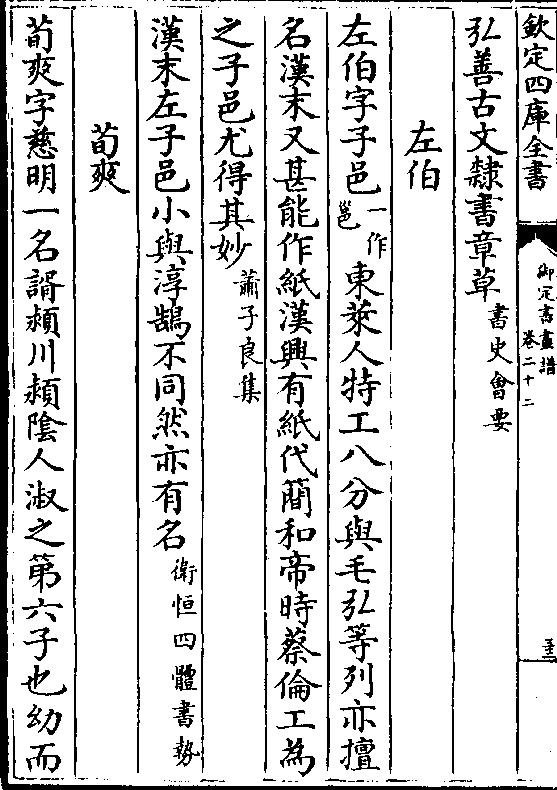 欽定四庫全書
御定書畫譜
卷二十二
弘善古文隸書章草書史會要
左伯
左伯字子邑一作邕東萊人特工八分與毛弘等列亦擅
名漢末又甚能作紙漢興有紙代簡和帝時蔡倫工為
之子邑尤得其妙蕭子良集
漢末左子邑小與淳鵠不同然亦有名衛恒四體書勢
荀爽
荀爽字慈明一名諝潁川潁陰人淑之第六子也幼而